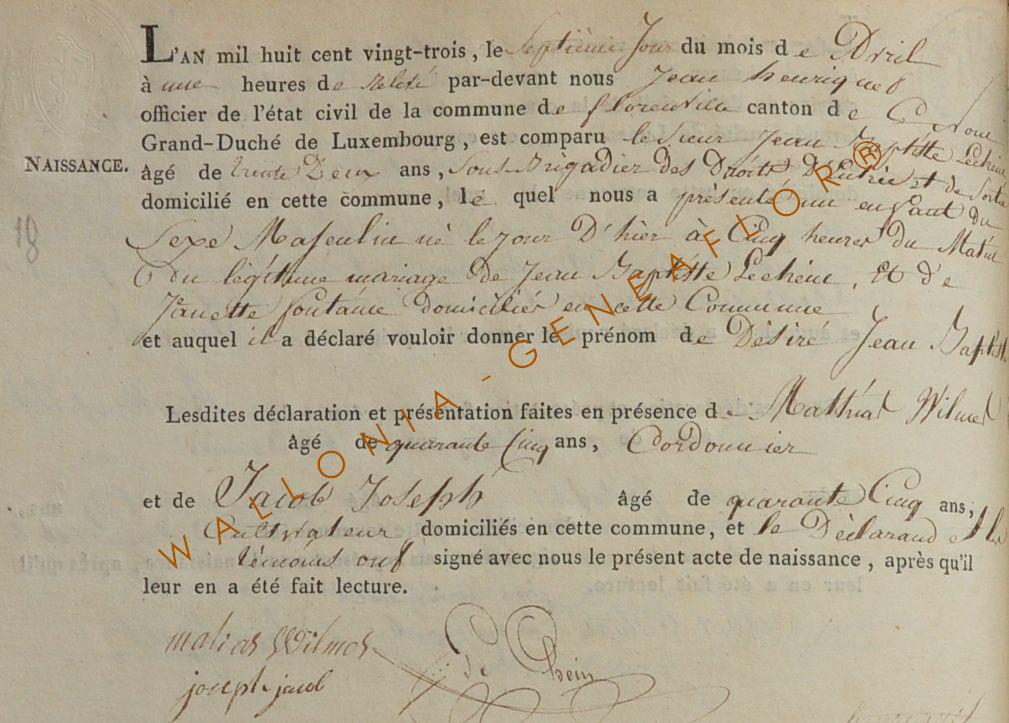 L'AN mil huit cent vingt-trois, le Septième Jour du mois de Avril
à une heures de relevé par-devant nous Jean henriquet
officier de l'état civil de la commune de florenville canton de
Grand-Duché de Luxembourg, est comparu le Sieur Jean Baptiste Lechêne
NAISSANCE. âgé de trente Deux ans, Sous Brigadier des Droits D'Entrée et de Sortie
domicilié en cette commune, lequel nous a présenté un enfant du
18
Sexe Masculin né le jour D'hier à Cinq heures du Matin
du légitime mariage de Jean Baptiste Lechêne, Et de
Janette fontaine domiciliés en cette Commune
et auquel il a déclaré vouloir donner le prénom de Désiré Jean Baptiste
Lesdites déclaration et présentation faites en présence de Mathias Wilmet
âgé de quarante Cinq ans, Cordonnier
et de Jacob Joseph âgé de quarante Cinq ans,
Cultivateur domiciliés en cette commune, et le Déclarand et les
témoins ont signé avec nous le présent acte de naissance, après qu'il
leur en a été fait lecture.
matias Wilmet
joseph jacob
WALLONIA-GENEAFLOR®